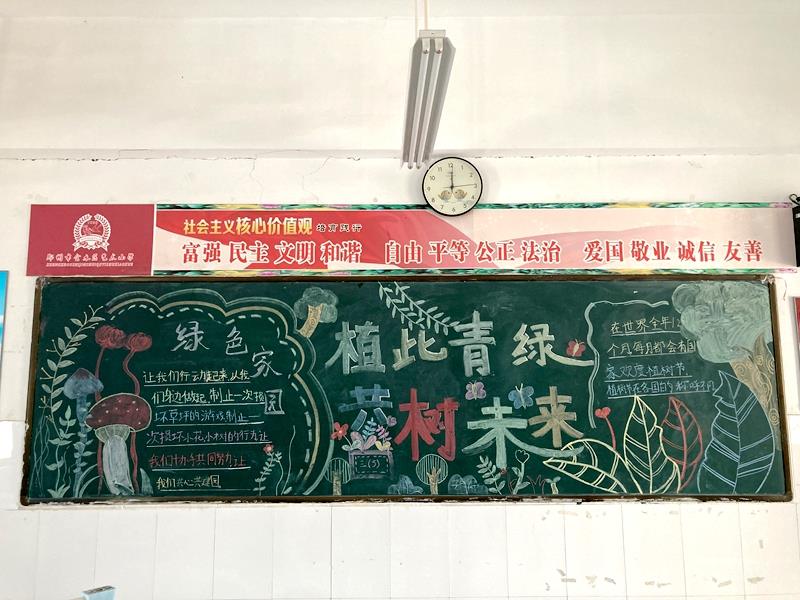 社会主义核心价值观 培育践行
富强 民主 文明 和谐 自由 平等 公正 法治 爱国 敬业 诚信 友善
郑州市金水区艺术小学
绿色家园
让我们行动起来从我
们身边做起,制止一次损
坏草坪的游戏制止
次损坏小花,小树的行为让
我们携手共同努力让
我们共心共建园
植此青绿
共树未来
三(5)
在世界全年12
个月每月都会有国
家欢度植树节,
植树节在各国的称呼不同